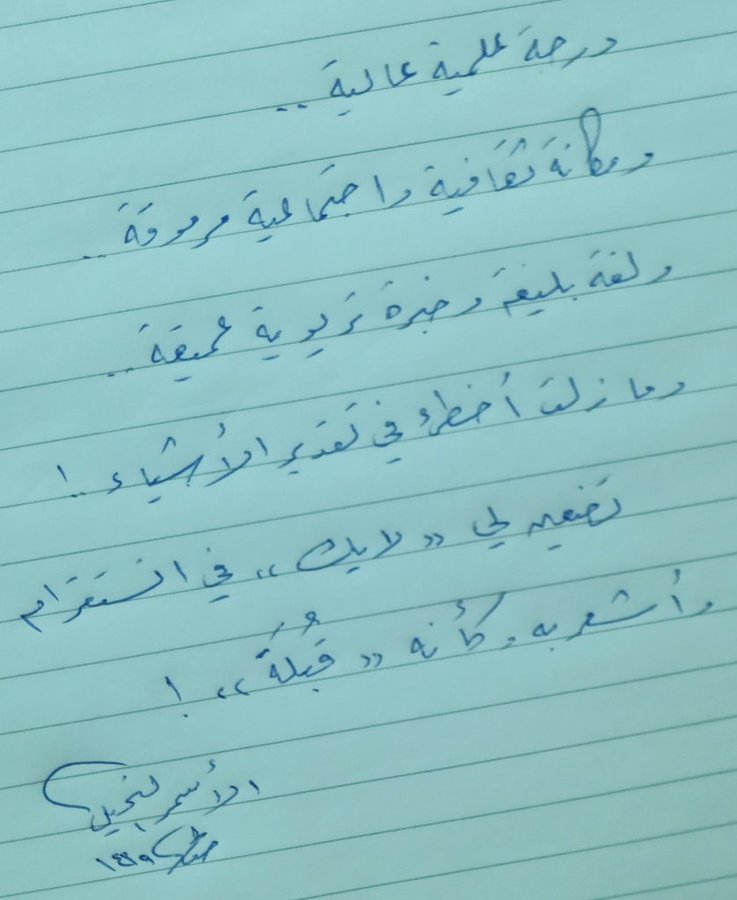 درجة علمية عالية ..
ومكانة ثقافية واجتماعية مرموقة ..
ولغة بليغة وخبرة تربوية عميقة ..
وما زلت أخطئ في تقدير الأشياء .. !
تضعين لي « لايك » في انستقرام
وأشعر به وكأنه « قُبلةً » !
الأسمر النحيل